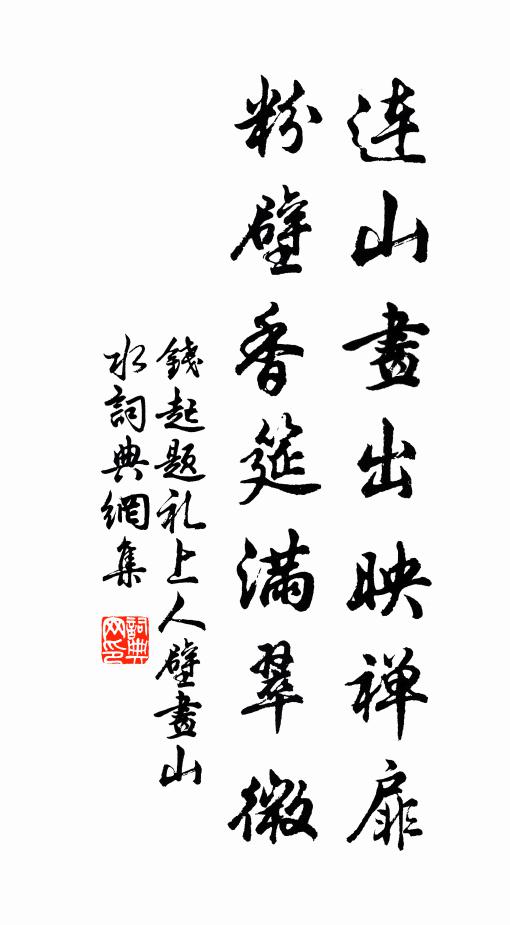 连山畫出映禅扉
粉壁香筵满翠微
錢起題礼上人壁畫山
水詞典網集
詞典
网印